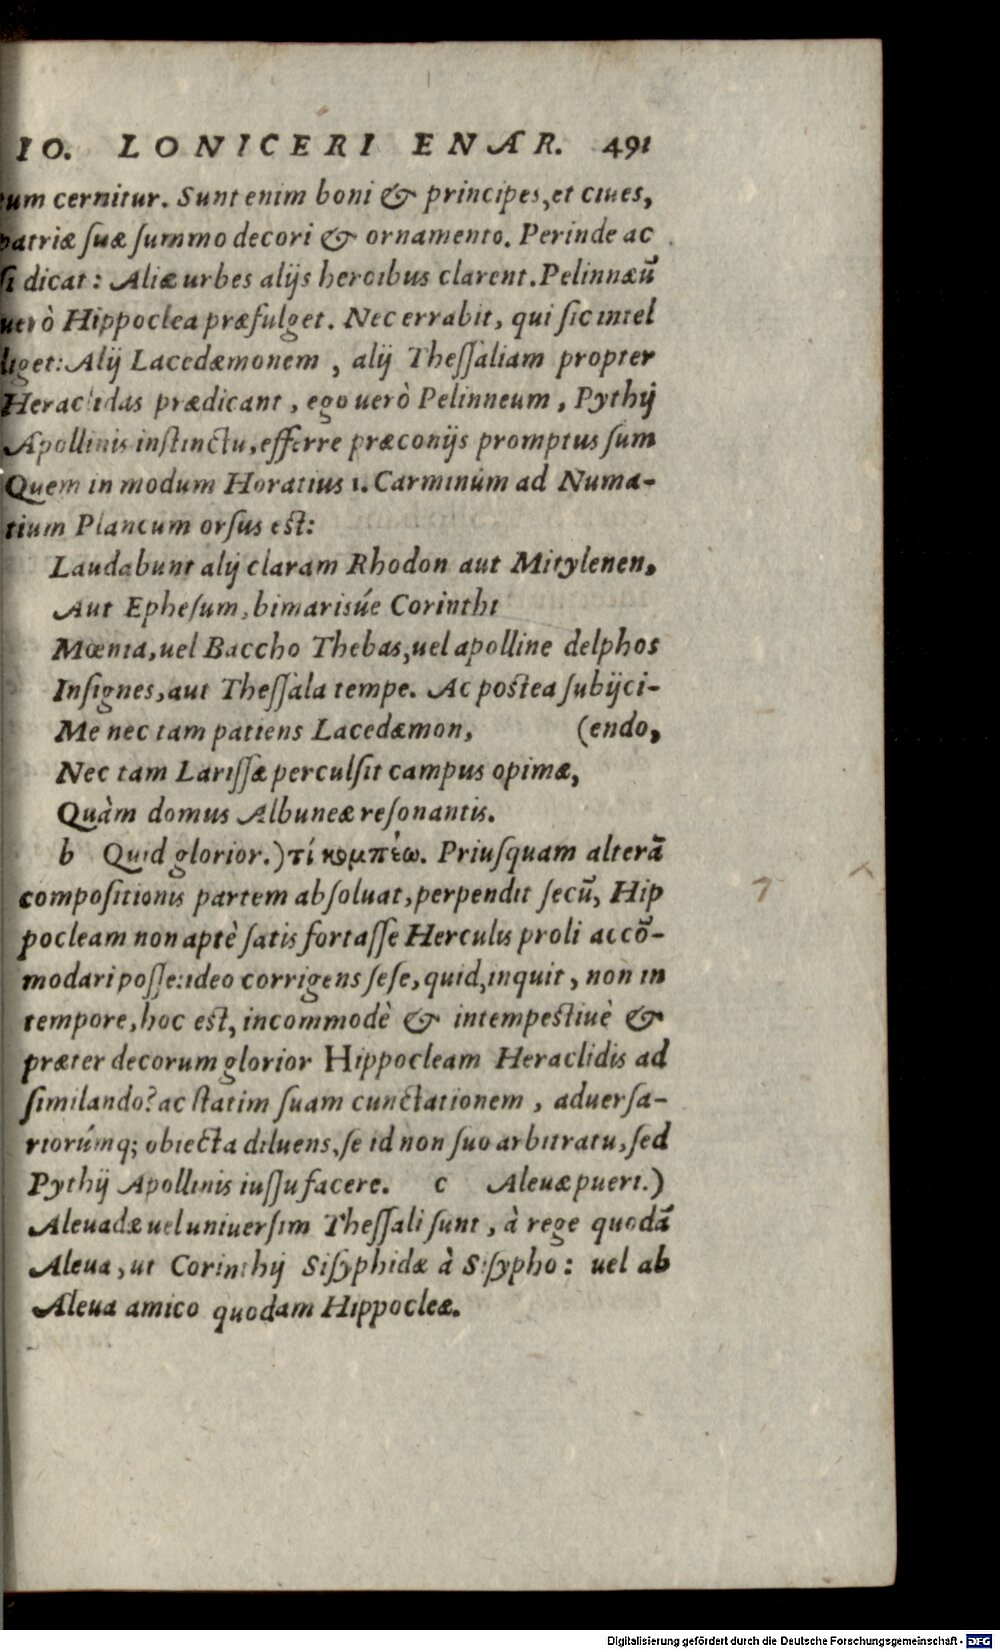 IO. LONICERI ENAR. 491
tum cernitur. Sunt enim boni & principes, et ciues,
patriæ suæ summo decori & ornamento. Perinde ac
si dicat: Aliæ urbes alijs heroibus clarent. Pelinnæū
uerò Hippoclea præfulget. Nec errabit, qui sic intel
liget: Alij Lacedæmonem, alij Thessaliam propter
Heraclidas prædicant, ego uerò Pelinneum, Pythij
Apollinis instinctu, efferre præconijs promptus sum
Quem in modum Horatius 1. Carminùm ad Numa-
tium Plancum orsus est:
Laudabunt alij claram Rhodon aut Mitylenen,
Aut Ephesum, bimarisúe Corinthi
Mœnia, uel Baccho Thebas, uel apolline delphos
Insignes, aut Thessala tempe. Ac postea subijci-
Me nec tam patiens Lacedæmon, (endo,
Nec tam Larissæ perculsit campus opimæ,
Quàm domus Albuneæ resonantis.
b Quid glorior.) τί κομπέω. Priusquam alterā
compositionis partem absoluat, perpendit secū, Hip
pocleam non aptè satis fortasse Herculis proli accō-
modari posse: ideo corrigens sese, quid, inquit, non in
tempore, hoc est, incommodè & intempestiuè &
præter decorum glorior Hippocleam Heraclidis ad
similando? ac statim suam cunctationem, aduersa-
riorúmq; obiecta diluens, se id non suo arbitratu, sed
Pythij Apollinis iussu facere. c Aleuæ pueri.)
Aleuadæ uel uniuersim Thessali sunt, à rege quodā
Aleua, ut Corinthij Sisyphidæ à Sisypho: uel ab
Aleua amico quodam Hippocleæ.
Digitalisierung gefördert durch die Deutsche Forschungsgemeinschaft - DFG